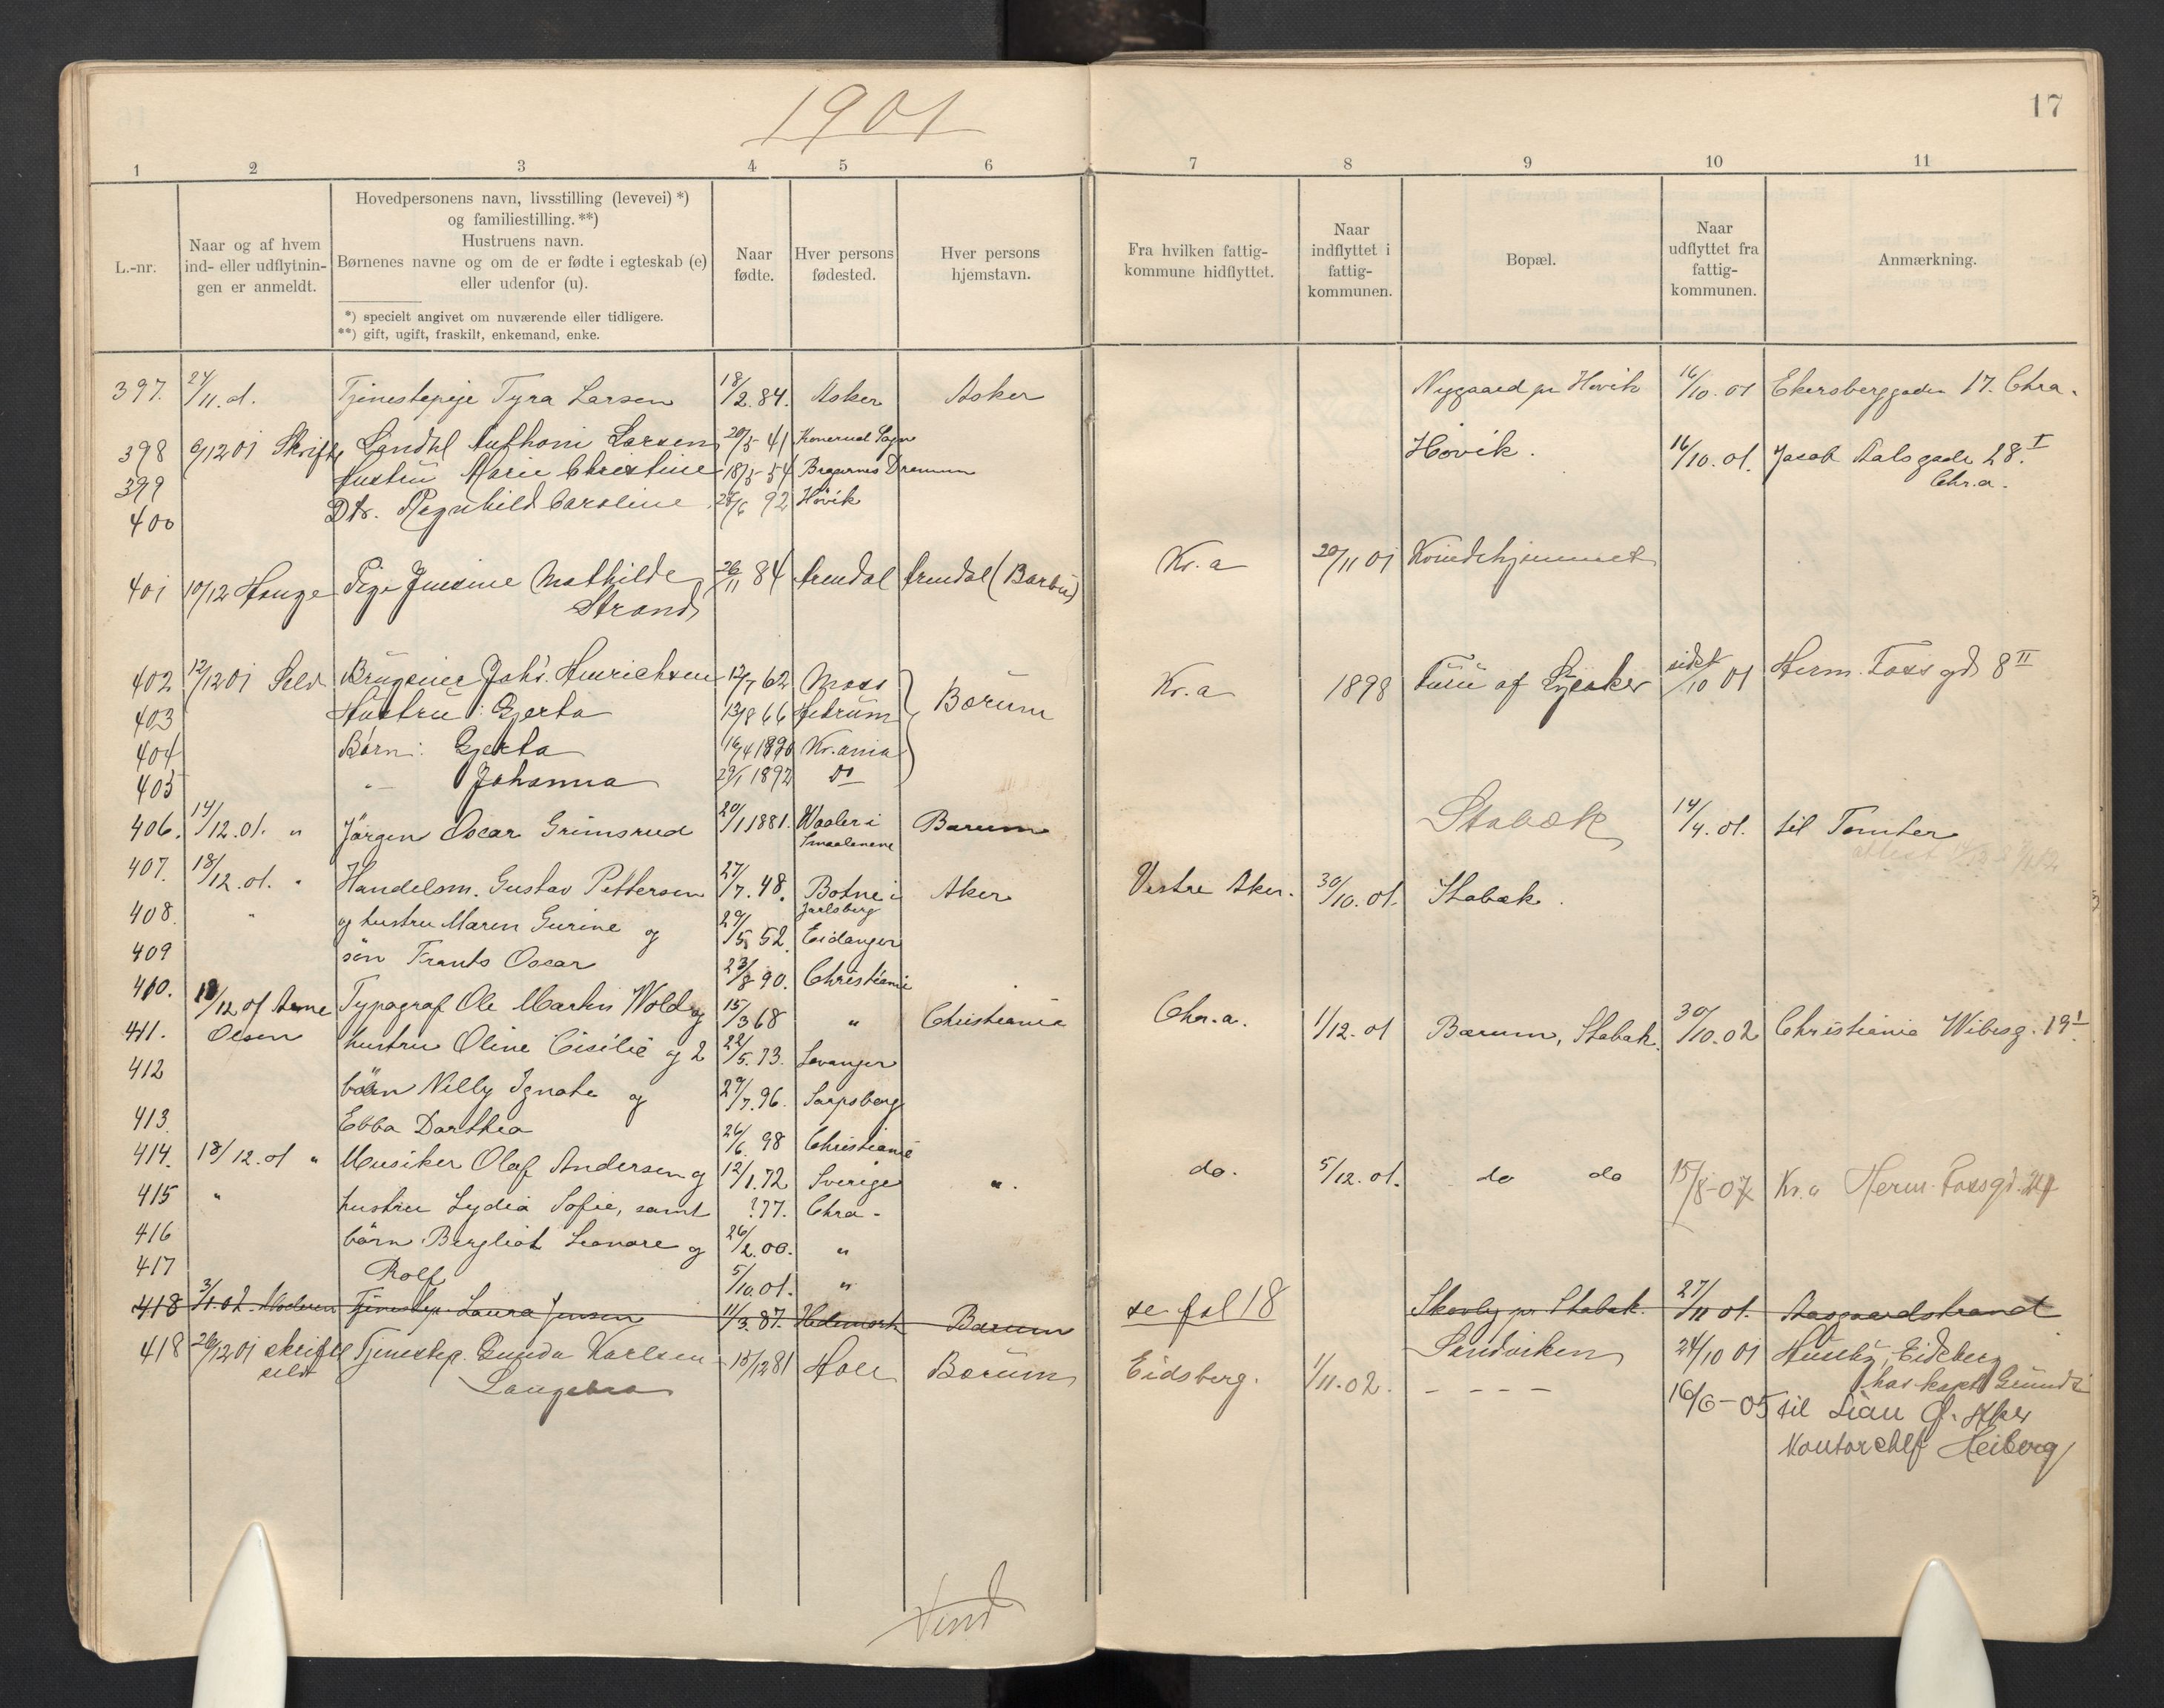 1901
17
1 2 3 4 5 6 7 8 9 10 11
L.-nr.
Naar og af hvem ind- eller udflytnin-gen er anmeldt.
Hovedpersonens navn, livsstilling (levevei) *)
og familiestilling. **)
Hustruens navn.
Børnenes navne og om de er fødte i egteskab (e)
eller udenfor (u).
*) specielt angivet om nuværende eller tidligere.
**) gift, ugift, fraskilt, enkemand, enke.
Naar fødte.
Hver persons fødested.
Hver persons hjemstavn.
Fra hvilken fattig-kommune hidflyttet.
Naar indflyttet i fattig-kommunen.
Bopæl.
Naar udflyttet fra fattig-kommunen.
Anmærkning.
397. 24/11. d. Tjenestepige Tyra Larsen 18/2.84. Asker Asker Nygaard pr Høvik 16/10.01 Ekersberggaden 17. Chra.
398 6/12 01 Skriftl Anthoni Larsen 20/5 41 Konerud Sogn Høvik. 16/10.01. Jacob Aalsgade 28.I
399 Hustru Marie Christine 18/5 54 Bragernes Drammen Chr.a.
400 Dtr. Ragnhild Caroline 28/6 92 Høvik
401 10/12 Hauge Pige Jensine Mathilde 26/11 84 Arendal Arendal (Barbu) Kr.a 20/11 01 Kvindehjemmet
Strand
402 12/12 01 Selv Johs. Henrichsen 12/7 62 Moss Bærum Kr.a 1898 af Lysaker sidst /10 01 Herm. Foss gd 8 II
403 Hustru: Gjerta 13/8 66
404 Børn: Gjerta 16/4 1890 Kr.ania
405 " Johanna 29/1 1892 Do
406. 14/12.01. " Jørgen Oscar Grimsrud 20/1 1881. Waaler i Smaalenene Bærum Stabæk 14/4.01. til Tomter
407. 18/12.01. " Handelsm. Gustav Pettersen 27/7.48. Botne i Jarlsberg Aker Vestre Aker. 30/10.01. Stabæk.
408. " og hustru Maren Gurine og 29/5 52. Eidanger
409 søn Frants Oscar 23/8 90. Christiania
410. 18/12 01 Arne Typograf Ole Martin Wold og 15/3 68 " Christiania Chr.a. 1/12.01 Bærum, Stabæk. 30/10.02 Christiania Wibesg. 19 I
411. Olsen hustru Oline Cisilie og 2 22/5.73. Levanger
412 børn Nelly Ignate og 29/7.96. Sarpsborg
413. Ebba Darthea 26/6. 98 Christiania
414. 18/12.01 " Musiker Olaf Andersen og 12/1.72 Sverige ". do. 5/12.01. do do 15/8-07 Kr.a Herm. Fossgd. 24
415 " hustru Lydia Sofie, samt ?77. Chra.
416 børn Bergliot Leonore og 26/2.00. "
417 Rolf 5/10.01. "
418 3/1.02. Moderen Tjenestep. Laura Jensen 11/3.87. Hedemark Bærum se fol 18 Skovly pr Stabæk. 27/11 01. Aasgaardstrand
418 26/12 01 skriftl selv Tjenestep. Gunda Karlsen 15/12 81 Hole Bærum Eidsberg. 1/11.02. Sandviken 24/10 01 Huseby, Eidsberg
- - - - 16/6-05 til Lian Ø. Aker
Kontorchef Heiberg
Vend